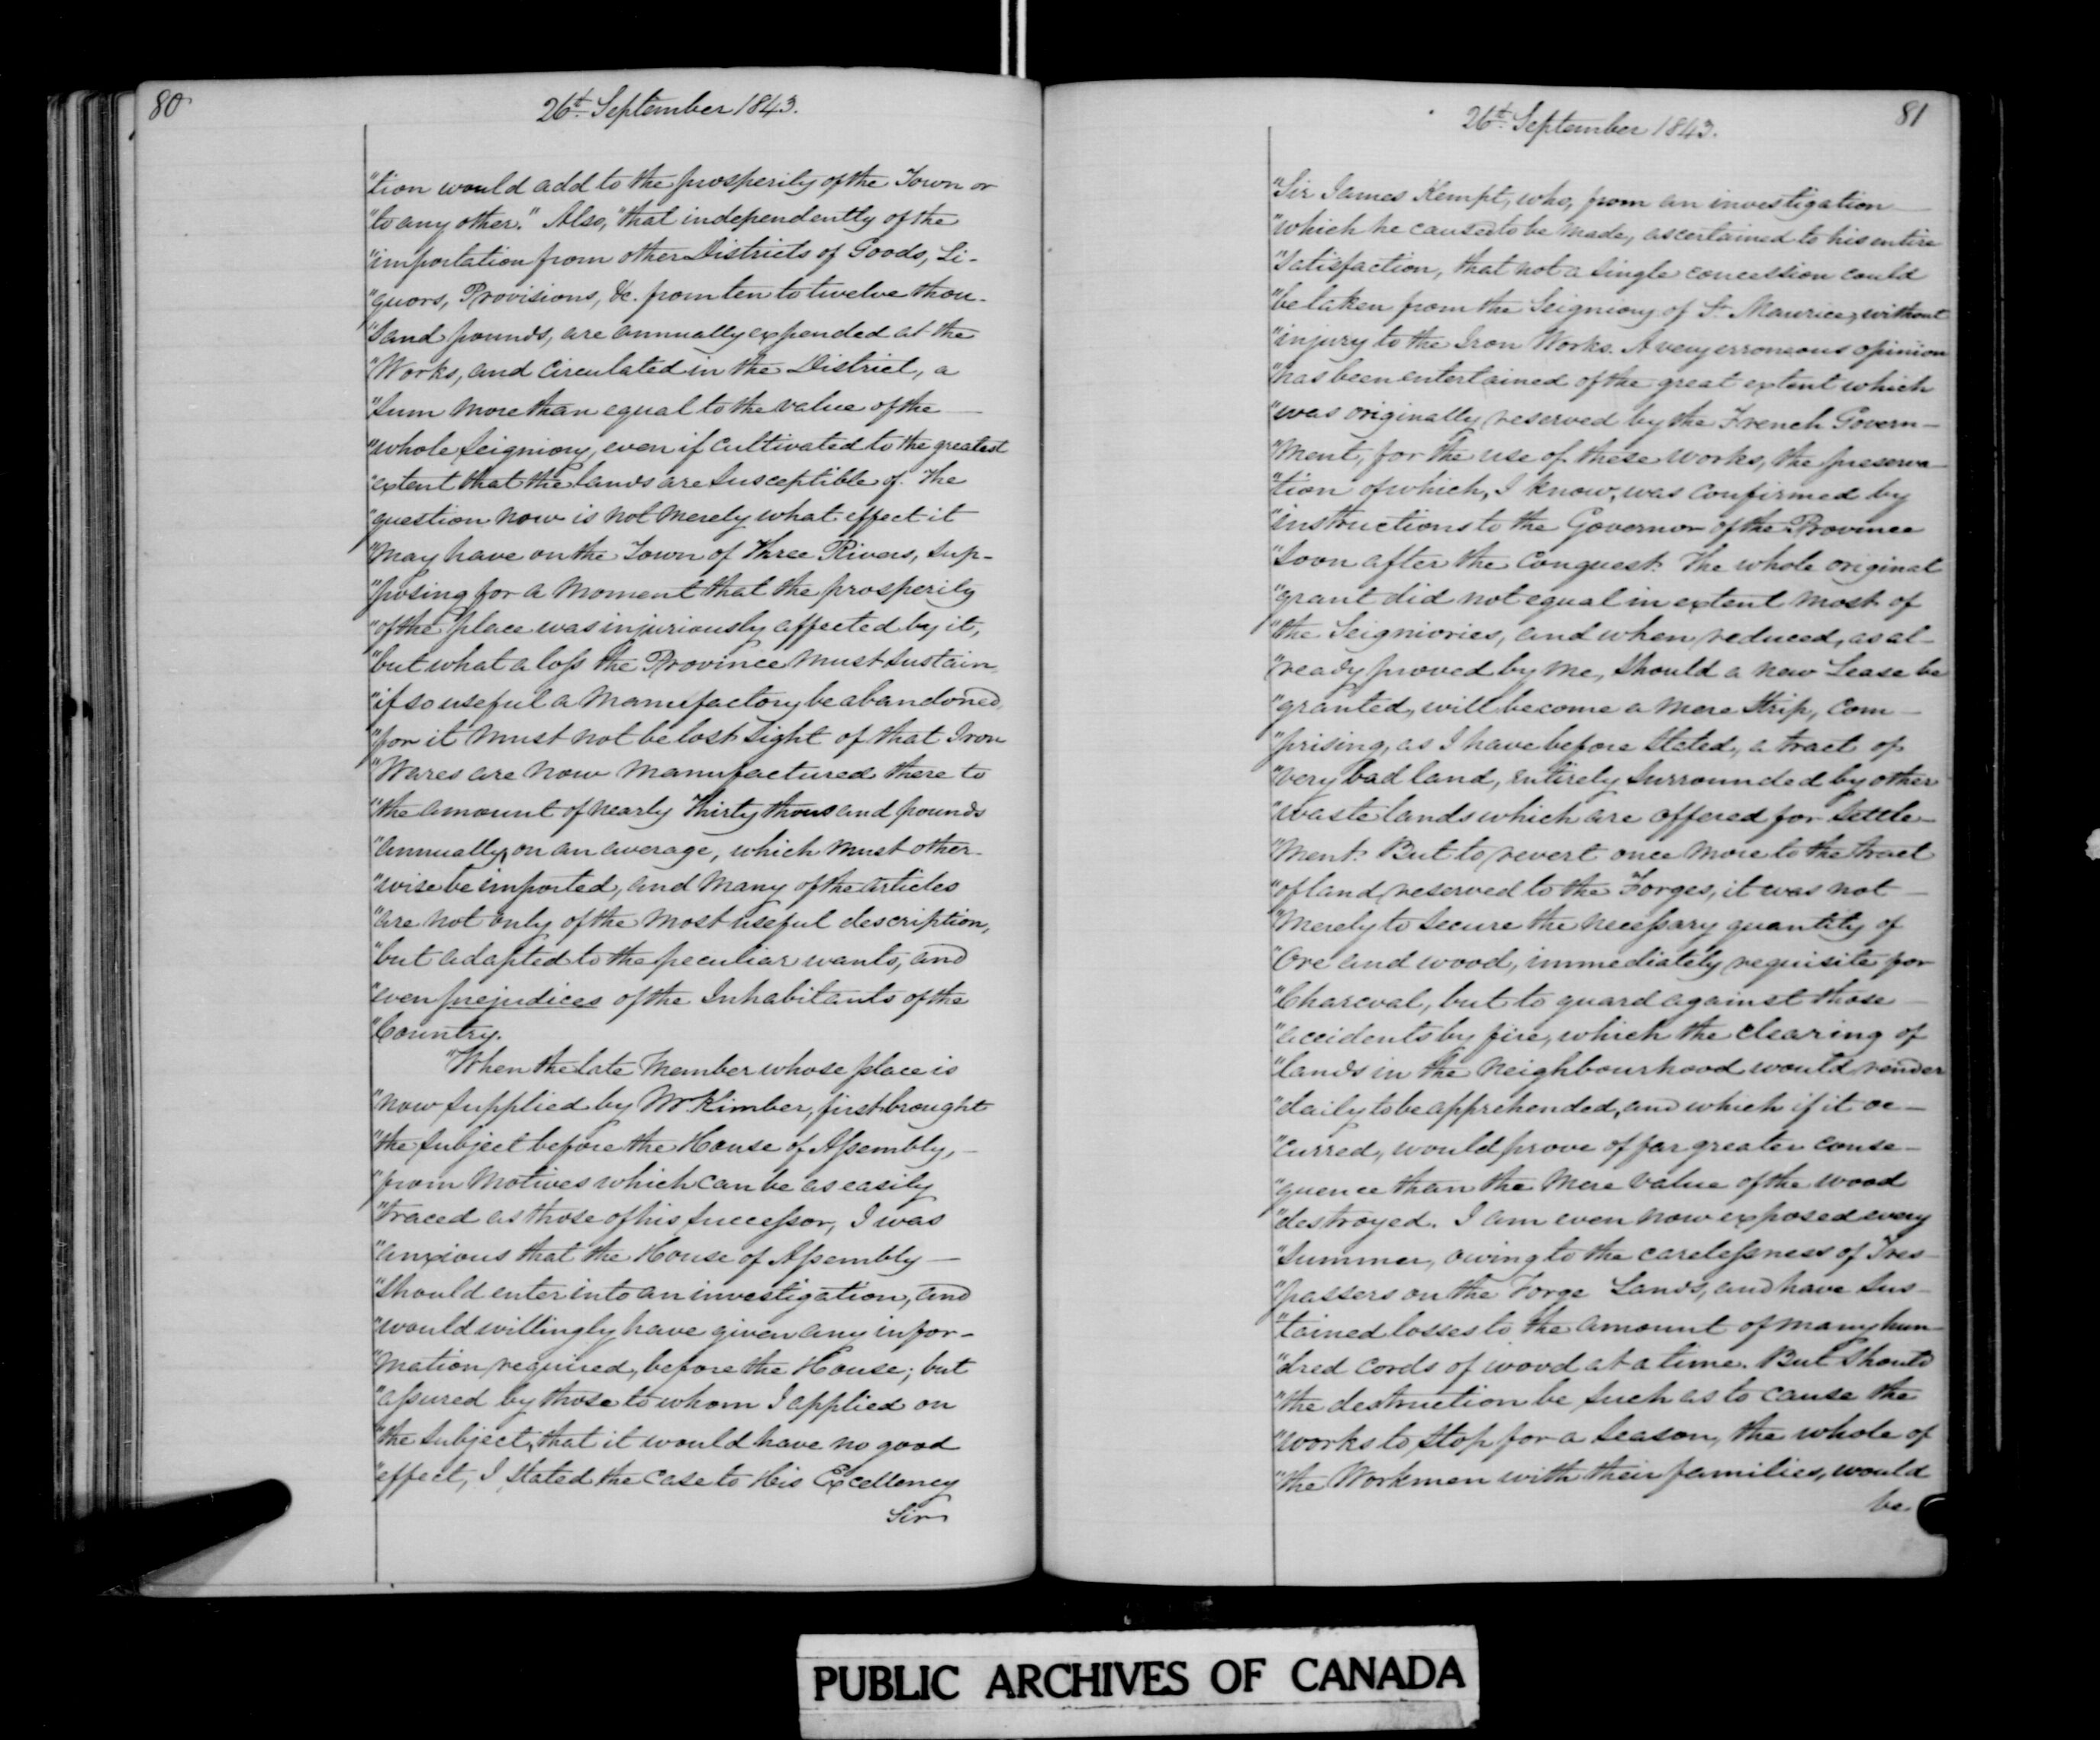 80
26t. September 1843.
"tion would add to the prosperity of the Town or
"to any other." Also, "that independently of the
"importation from other Districts of Goods, Li-
"quors, Provisions, &c. from ten to twelve thou-
"sand pounds, are annually expended at the
"Works, and circulated in the District, a
"sum more than equal to the value of the
"whole Seigniory, even if cultivated to the greatest
"extent that the lands are susceptible of. The
"question now is not merely what effect it
"may have on the Town of Three Rivers, sup-
"posing for a moment that the prosperity
"of the place was injuriously affected by it,
"but what a loss the Province must sustain,
"if so useful a Manufactory be abandoned,
"for it must not be lost sight of that Iron
"Wares are now manufactured there to
"the amount of nearly Thirty thousand pounds
"annually, on an average, which must other-
"wise be imported, and many of the articles
"are not only of the most useful description,
"but adapted to the peculiar wants, and
"even prejudices of the Inhabitants of the
"Country.
"When the late Member whose place is
"now supplied by Mr Kimber, first brought
"the subject before the House of Assembly, -
"from motives which can be as easily
"traced as those of his Successor, I was
"anxious that the House of Assembly —
"should enter into an investigation, and
"would willingly have given any infor-
"mation required, before the House; but
"assured by those to whom I applied on
"the subject, that it would have no good
"effect, I stated the case to His Excellency
Sir
81
26t. September 1843.
"Sir James Kempt, who, from an investigation —
"which he caused to be made, ascertained to his entire
"satisfaction, that not a single concession could
"be taken from the Seigniory of St. Maurice, without
"injury to the Iron Works. A very erroneous opinion
"has been entertained of the great extent which
"was originally reserved by the French Govern-
"ment, for the use of these works, the preserva-
"tion of which, I know, was confirmed by
"instructions to the Governor of the Province
"soon after the Conquest. The whole original
"grant did not equal in extent most of
"the Seigniories, and when reduced, as al-
"ready proved by me, should a new Lease be
"granted, will become a mere strip, com-
"prising, as I have before stated, a tract of
"very bad land, entirely surrounded by other
"waste lands which are offered for settle-
"ment. But to revert once more to the tract
"of land reserved to the Forges, it was not —
"merely to secure the necessary quantity of
"Ore and wood, immediately requisite for
"Charcoal, but to guard against those —
"accidents by fire, which the clearing of
"lands in the neighbourhood would render
"daily to be apprehended, and which if it oc-
"curred, would prove of far greater conse-
"quence than the mere value of the wood
"destroyed. I am even now exposed every
"summer, owing to the carelessness of Tres-
"passers on the Forge Lands, and have sus-
"tained losses to the amount of many hun-
"dred cords of wood at a time. But should
"the destruction be such as to cause the
"works to stop for a season, the whole of
"the Workmen with their families, would
be
PUBLIC ARCHIVES OF CANADA